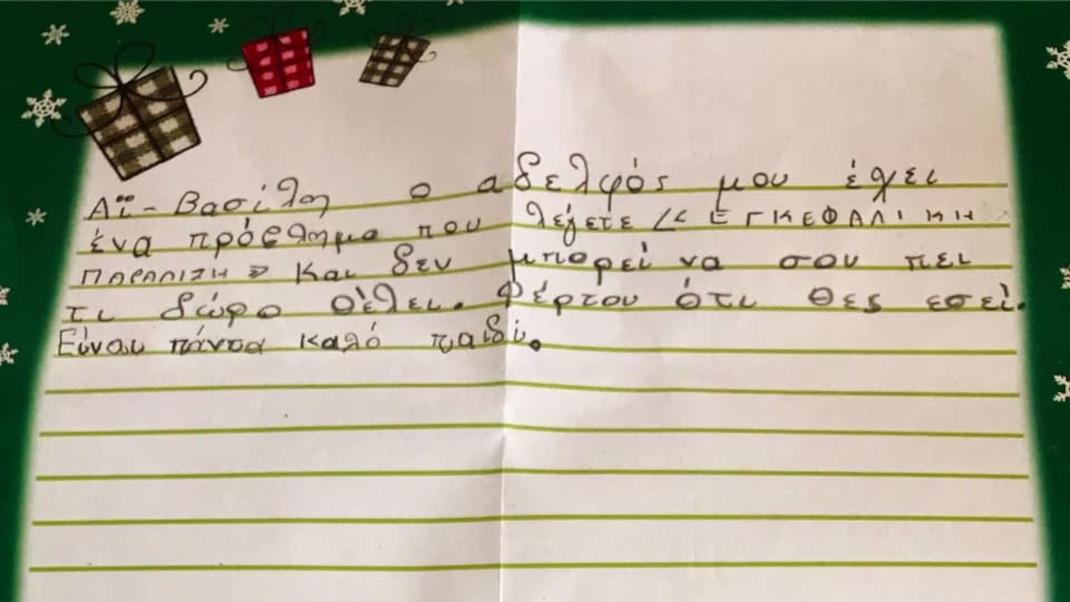 Αϊ-Βασίλη ο αδελφός μου έχει
ένα πρόβλημα που λέγετε << ΕΓΚΕΦΑΛΙΚΗ
ΠΑΡΑΛΙΣΗ >> Και δεν μπορεί να σου πει
τι δώρο θέλει. Φέρτου ότι θες εσεί.
Είναι πάντα καλό παιδί.